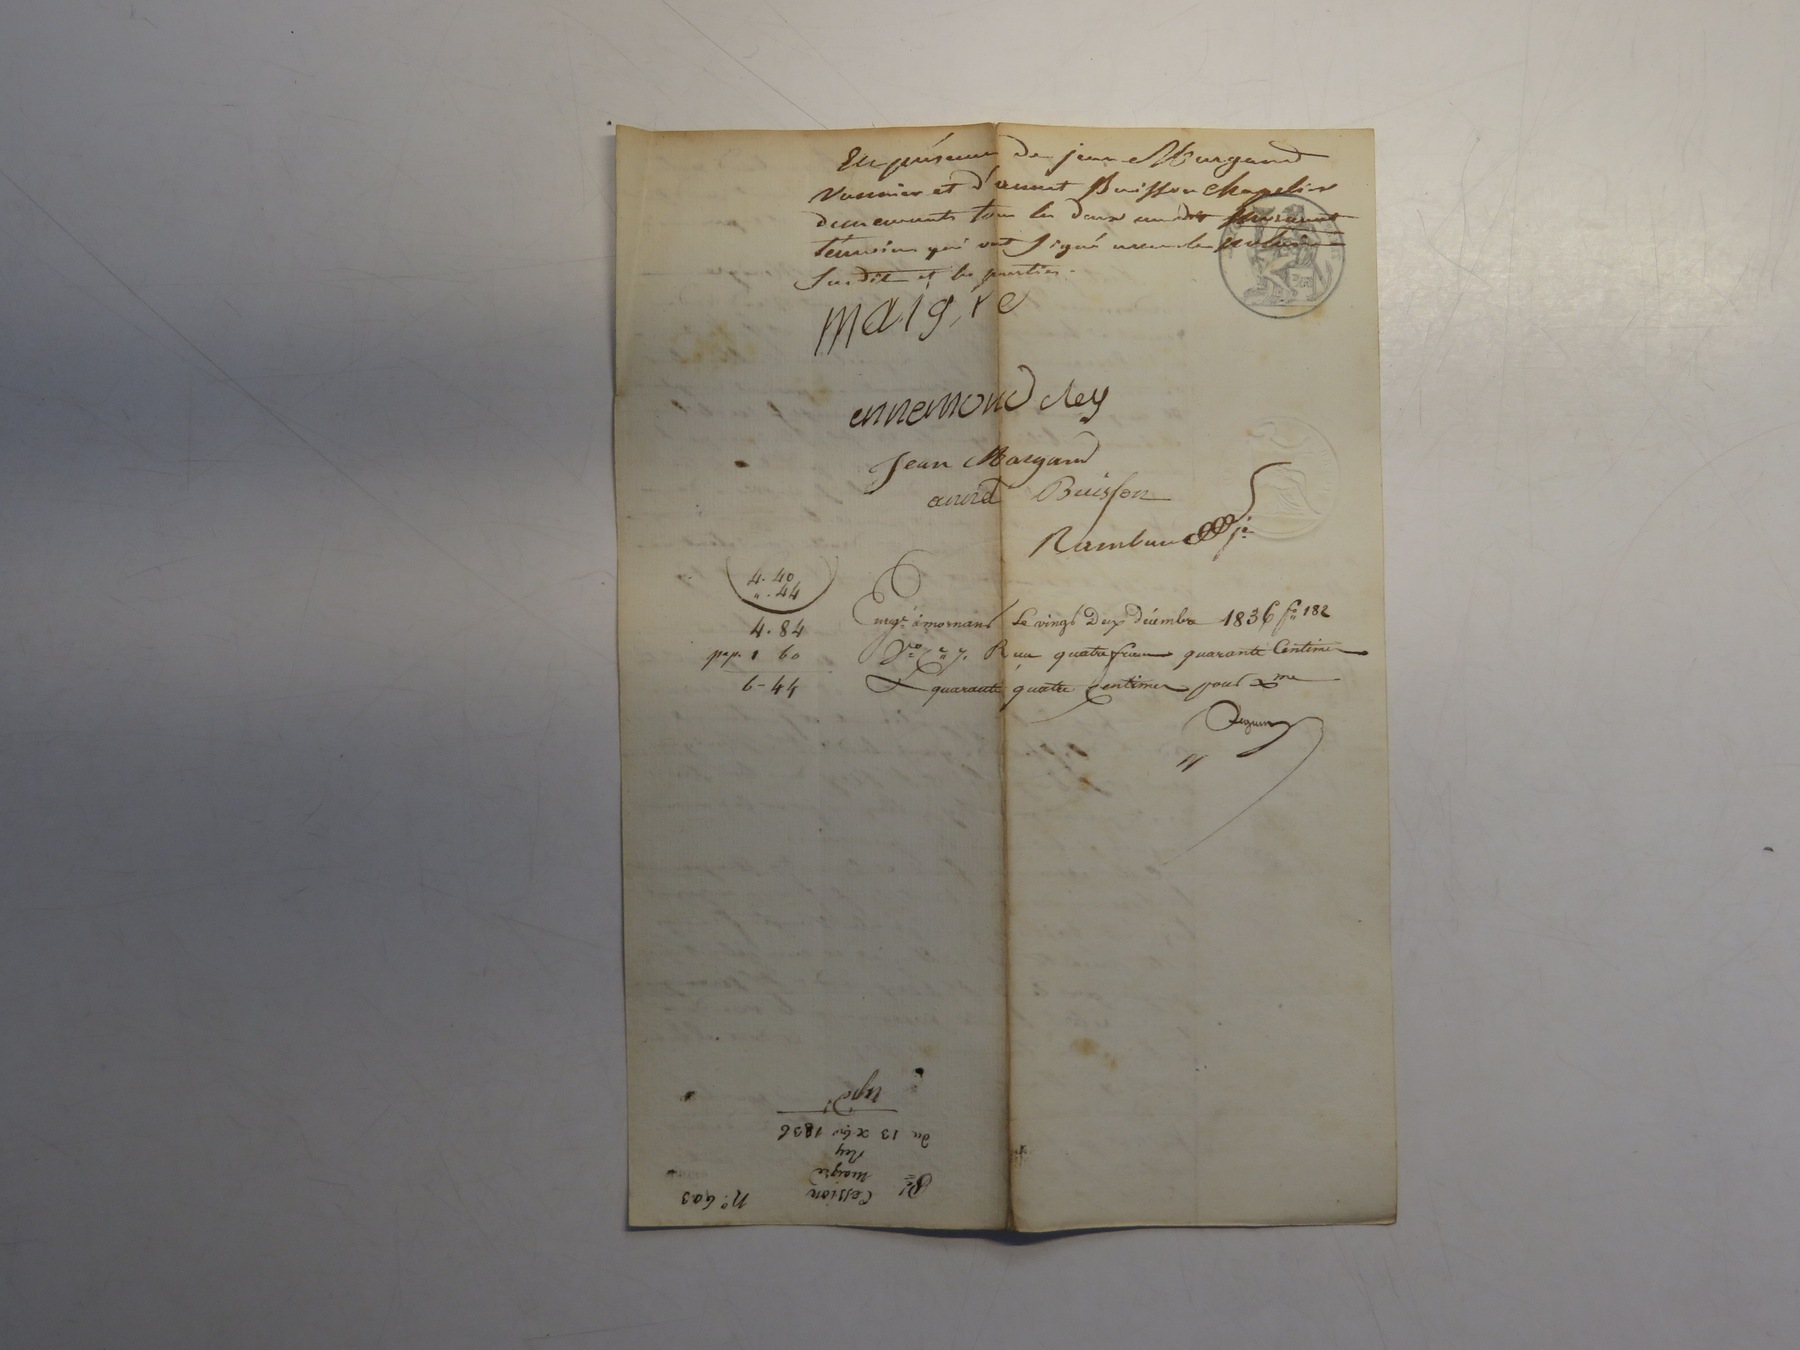 En présence de jean Margand
vannier et d'anné Buisson chapelier
demeurants tous les deux audit
témoins qui ont signé avec le notaire
susdit et les parties.
maigre
ennemond Rey
Jean Margand
anné Buisson
Rambaud
4. 40
". 44
4. 84
pap. 1 60
6 - 44
Enregé à mornant le vingt Deux décembre 1836 fo 182
Vo Reçu quatre francs quarante Centimes
& quarante quatre Centimes pour Xme
No 403
Cession
maigre
Rey
du 13 Xbre 1836
Expedé